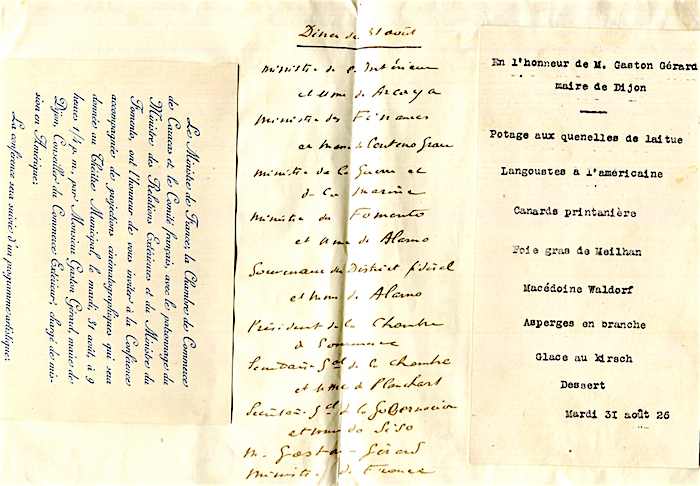 Le Ministre de France, la Chambre de Commerce
de Caracas et le Comité français, avec le patronage du
Ministre des Relations Extérieures et du Ministre du
Fomento, ont l'honneur de vous inviter à la Conférence
accompagnée de projections cinématographiques qui sera
donnée au Théâtre Municipal, le mardi 31 août, à 9
heures 1/4 p. m., par Monsieur Gaston Gérard, maire de
Dijon, Conseiller du Commerce Extérieur, chargé de mis-
sion en Amérique.
La conférence sera suivie d'un programme artistique.
Diner du 31 août
Ministre de l'Intérieur
et Mme de Arcaya
Ministre des Finances
et Mme de Centeno Grau
Ministre de la Guerre et
de la Marine
Ministre du Fomento
et Mme de Alamo
Gouverneur du District fédéral
et Mme de Alamo
Président de la Chambre
de Commerce
Secrétaire Gal de la Chambre
et Mme de Planchart
Secrétaire Gal de la Gobernacion
et Mme de Siso
M. Gaston-Gérard
Ministre de France
En l'honneur de M. Gaston Gérard
maire de Dijon
Potage aux quenelles de laitue
Langoustes à l'américaine
Canards printanière
Foie gras de Meilhan
Macédoine Waldorf
Asperges en branche
Glace au kirsch
Dessert
Mardi 31 août 26